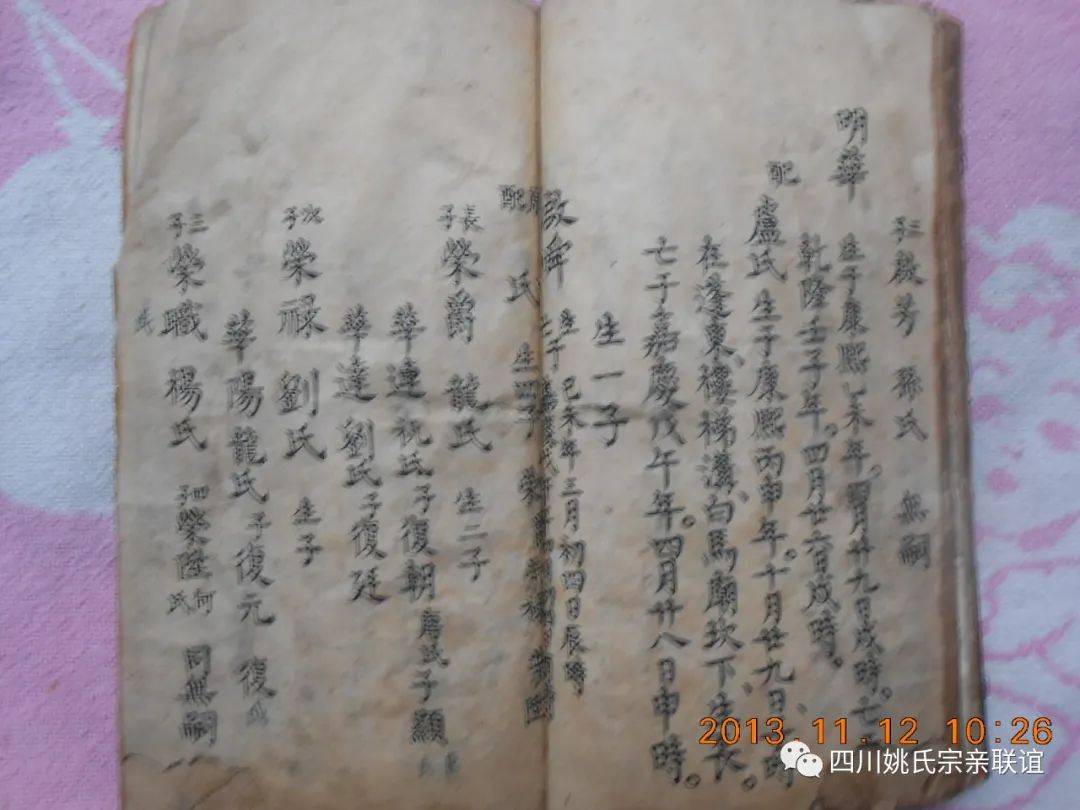 三子 啟芳 孫氏 無嗣
明華 生于康熙乙未年。四月廿九日戌時。亡
乾隆壬子年。四月廿六日戌時。
配盧氏 生于康熙丙申年。十月廿九日、時
在遂東、樓梯溝、白馬廟坎下生長
亡于嘉慶戊午年。四月廿八日申時。
生一子
啟舜 生于己未年三月初四日辰時
配 氏 生四子 榮
長子 榮爵 龍氏 生二子
華連 祝氏 子復朝 唐氏 子顯
華達 劉氏 子復廷
次子 榮祿 劉氏 生子
華陽 龍氏 子復元 復
三子 榮職 楊氏 四子 榮陞 何氏 同無嗣
氏
2013.11.12 10:26
四川姚氏宗亲联谊